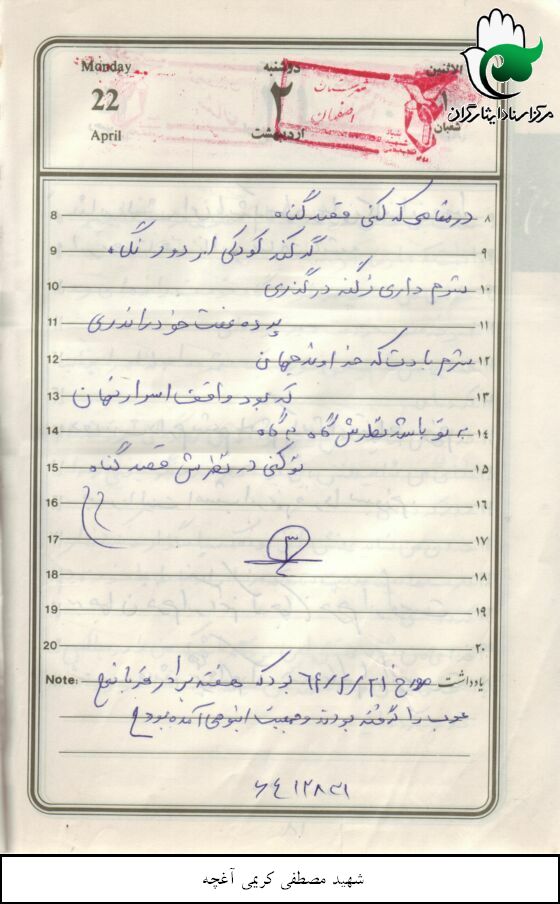 Monday
22
April
دوشنبه
۲
اردیبهشت
الاثنین
۱
شعبان
مرکز اسناد ایثارگران
اصفهان
8 در مقامی که کنی قصد گناه ۸
9 گر کند کودکی از دور نگاه ۹
10 شرم داری ز گنه درگذری ۱۰
11 پرده عفت خود را ندری ۱۱
12 شرم بادت که خداوند جهان ۱۲
13 که بود واقف اسرار نهان ۱۳
14 به تو باشد نظرش گاه به گاه ۱۴
15 تو کنی در نظرش قصد گناه ۱۵
16 ۱۶
17 ۳ ۱۷
18 ۱۸
19 ۱۹
20 ۲۰
Note: یادداشت مورخ بود که هفته برادر
را گرفته بودند و جمعیت انبوهی آمده بود
شهید مصطفی کریمی آغچه